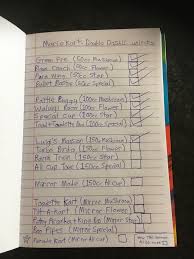 Mario Kart: Double Dash!! unlocks
Green Fire (50cc Mushroom)
Bloom Coach (50cc Flower)
Para Wing (50cc Star)
Bullet Blaster (50cc Special)
Rattle Buggy (100cc Mushroom)
Waluigi Racer (100cc Flower)
Special Cup (100cc Star)
Toad + Toadette (100cc Special)
Luigi's Mansion (150cc Mushroom)
Turbo Birdo (150cc Flower)
Barrel Train (150cc Star)
All Cup Tour (150cc Special)
Mirror Mode (150cc All cup)
Toadette Kart (Mirror Mushroom)
(Mirror Flower)
Petey Piranha + King Boo (Mirror Star)
Boo Pipes (Mirror Special)
Parade Kart (Mirror All Cup)